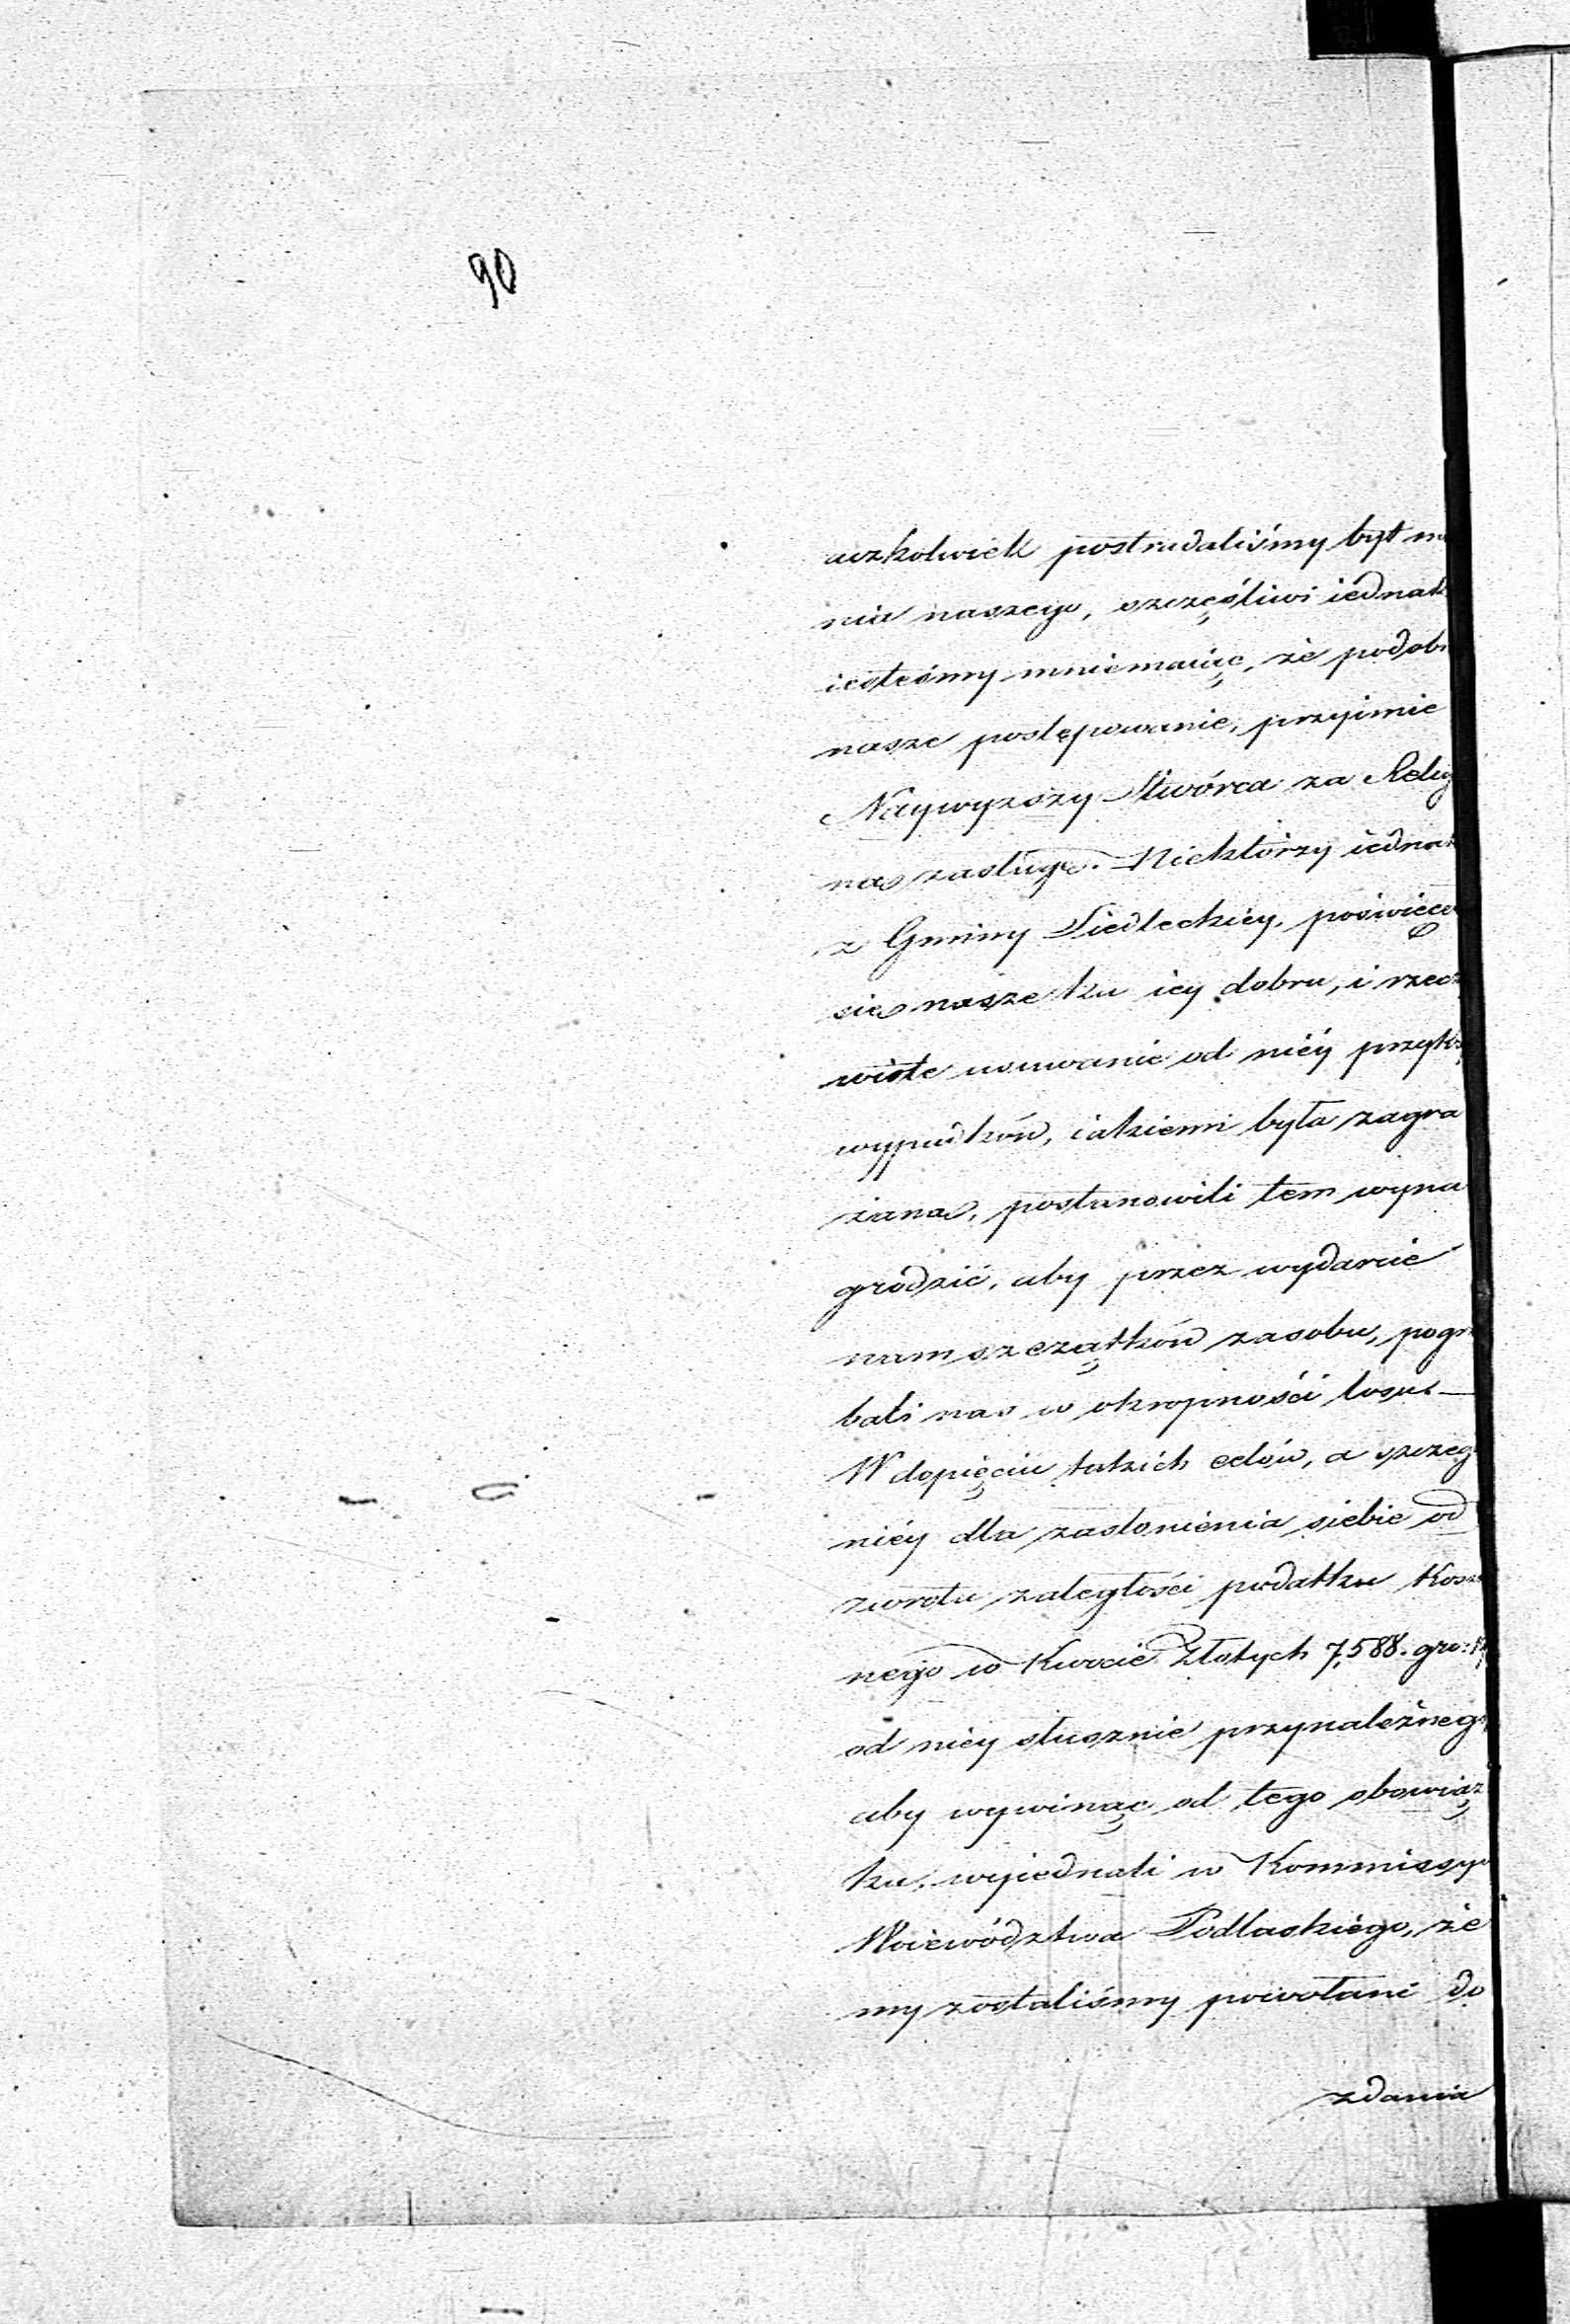 90
aczkolwiek postradaliśmy byt
nia naszego, szczęśliwi iednak
iesteśmy mniemaiąc, że podob
nasze postępowanie, przyimie
Naywyzszy Stwórca za Relig
nas zasługę. Niektórzy iednak
z Gminy Siedleckiey, poświęce
sie nasze ku iey dobru, i rzeczy
wiste usuwanie od niéy
wypadków, iakiemi była zagra
żana, postanowili tem wyna
grodzić, aby przez wydarcie
nam szczątków zasobu, pogrze
bali nas w okropności losu.—
W dopięciu takich celów, a szczeg
niéy dla zasłonienia siebie od
zwrotu zaległości podatku Kosz
nego w Kwocie Złotych 7,588. gro:
od niey słusznie przynależneg
aby wywinąc od tego obowiąz
ku, wyiednali w Kommissyi
Woiewództwa Podlaskiego, że
my zostaliśmy powołani do
zdania